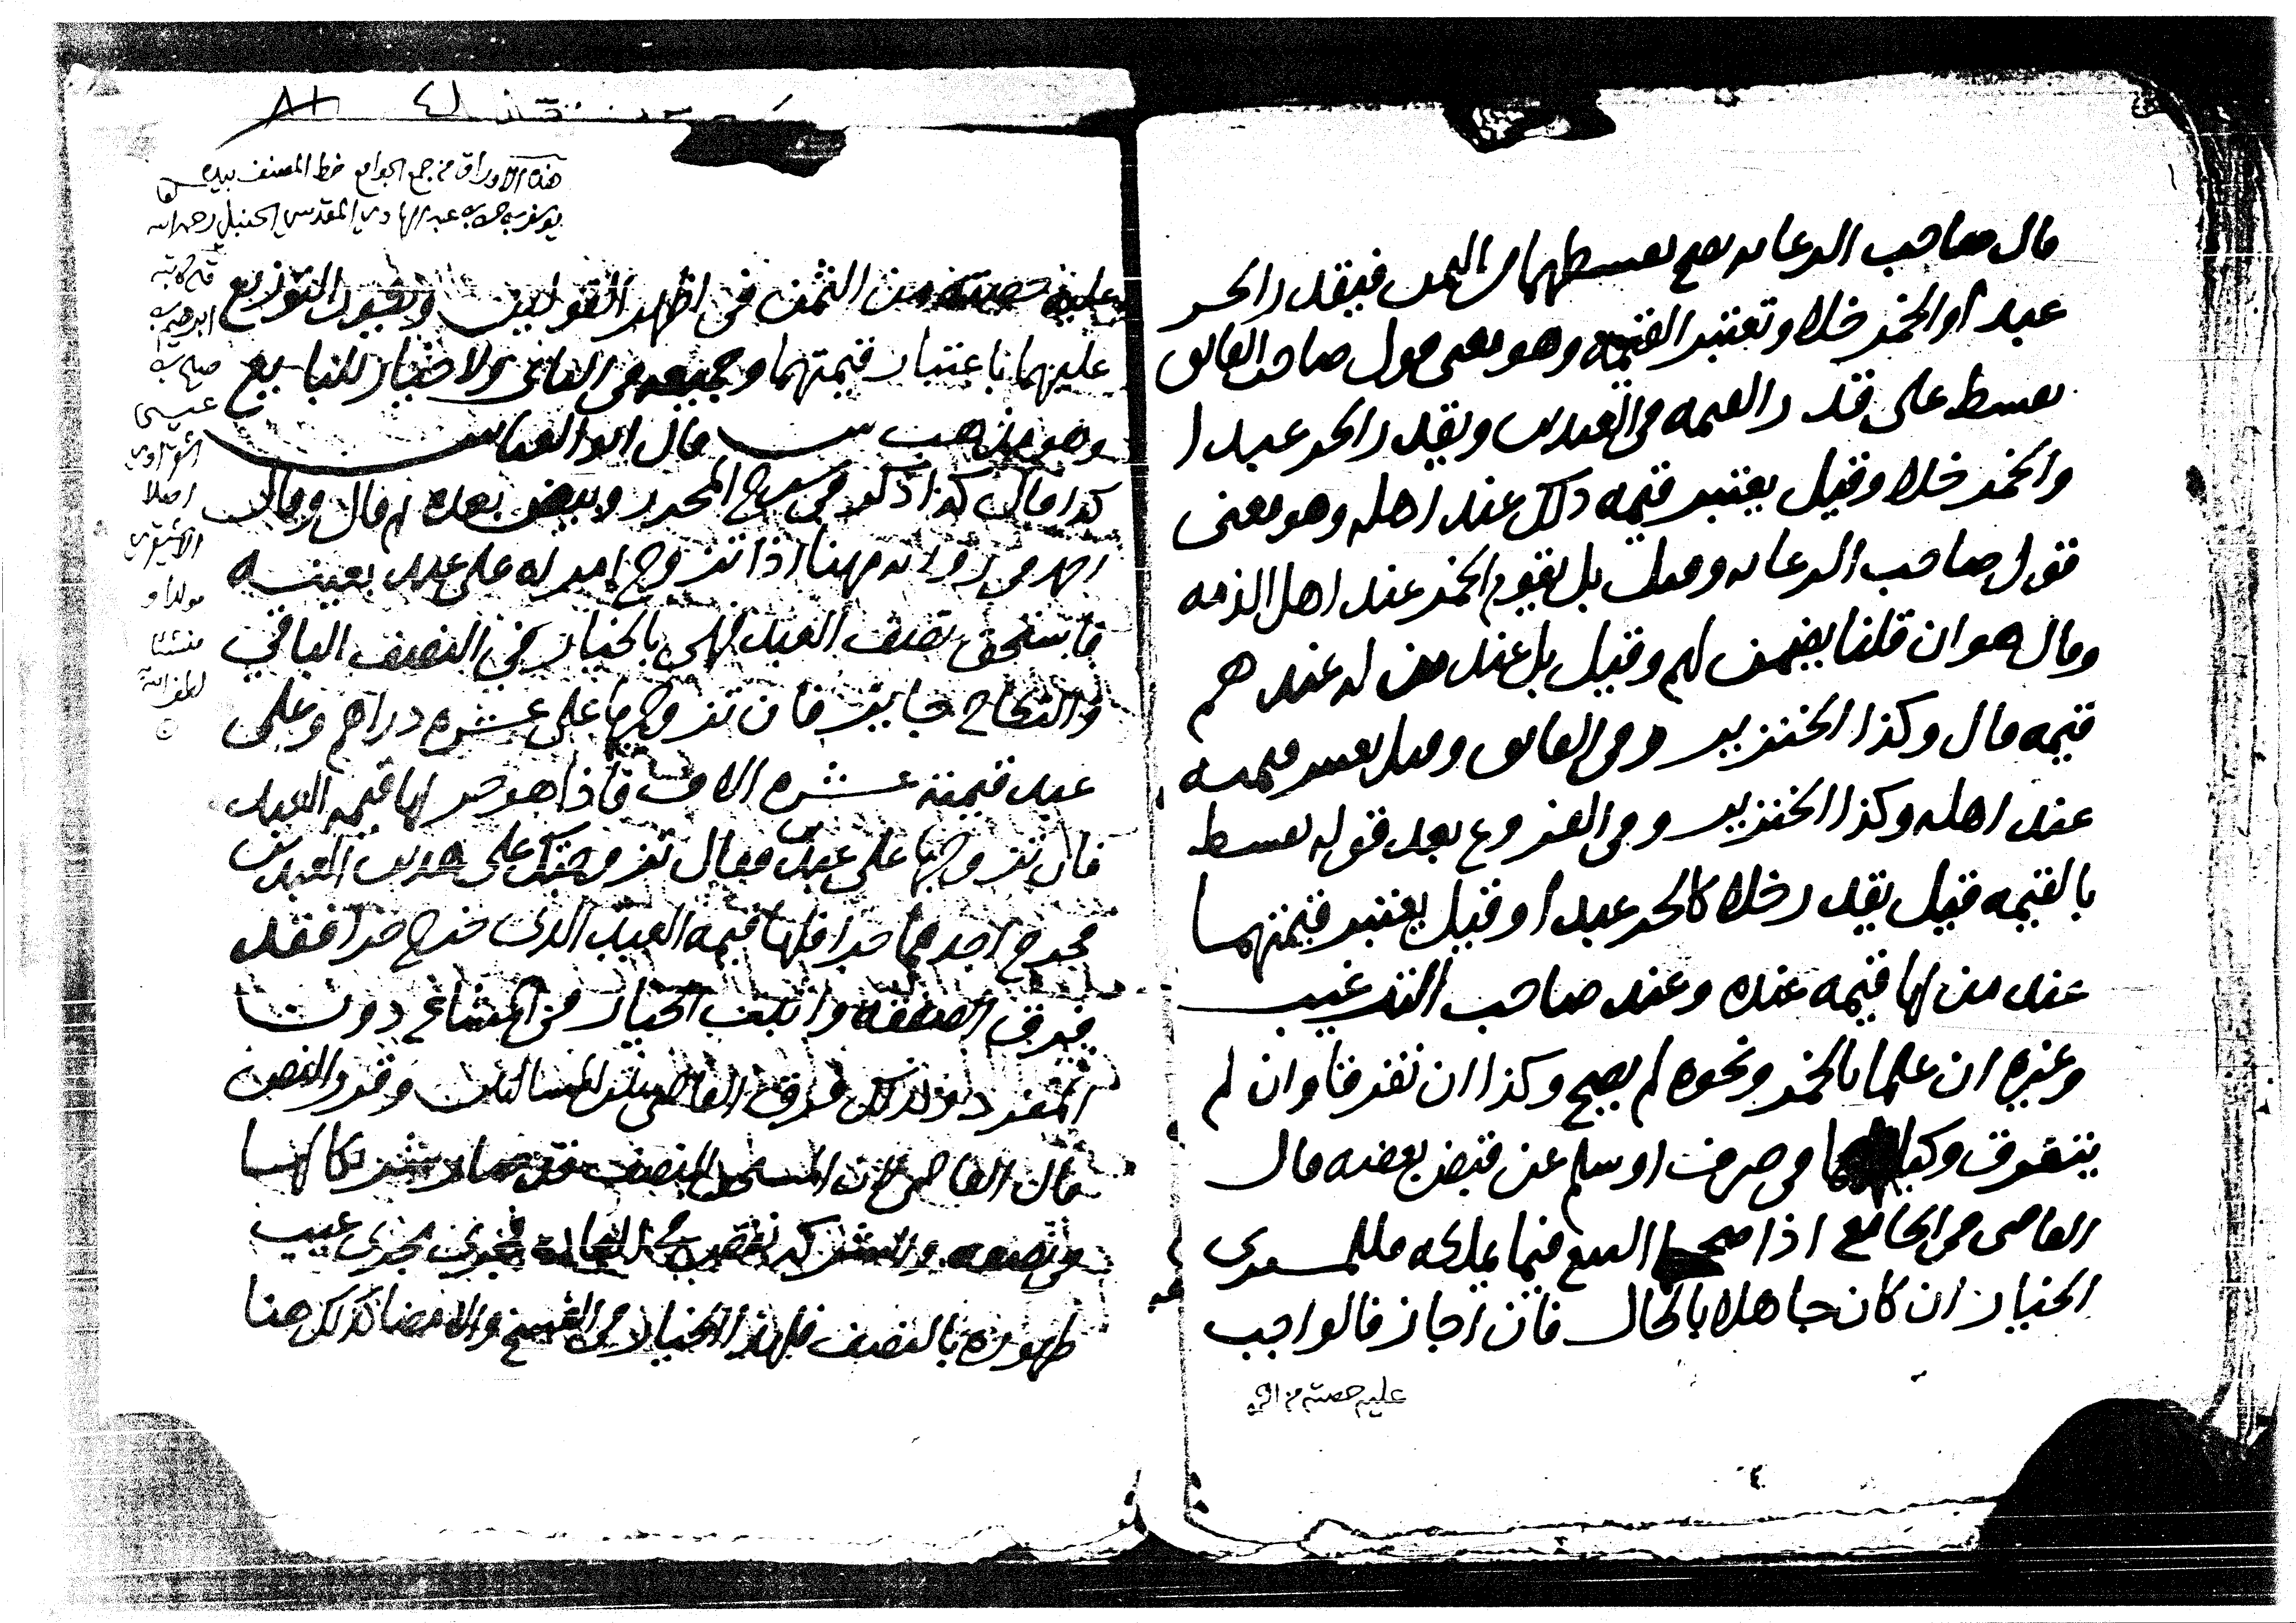 قال صاحب الرعايه يصح بقسطهما من الثمن فيقدر الحر
عبدا والخمر خلا وتعتبر القيمه وهو معنى قول صاحب الفايق
بقسط على قدر القيمه في العبدين ويقدر الحر عبدا
والخمر خلا وقيل يعتبر قيمه ذلك عند اهله وهو معنى
قول صاحب الرعايه وقيل بل يقوم الخمر عند اهل الذمه
وقال هو ان قلنا يضمن لهم وقيل بل عند من له عندهم
قيمه قال وكذا الخنزير وفي الفايق وقيل يعتبر قيمته
عند اهله وكذا الخنزير وفي الفروع بعد قوله بقسط
بالقيمه قيل يقدر خلا كالحر عبدا وقيل يعتبر قيمتهما
عند من لها قيمه عنده وعند صاحب الترغيب
وغيره ان علما بالخمر ونحوه لم يصح وكذا ان تفرقا وان لم
يتفرق في صرف او سلم عن قبض بعضه قال
القاضي في الجامع اذا البيع فيما يملكه فللمشتري
الخيار ان كان جاهلا بالحال فان اجاز فالواجب
عليه حصته من الثمن
هذه الاوراق من جمع الجوامع خط المصنف بيده
يوسف بن عبد الهادي المقدسي الحنبلي رحمه الله
قاله كاتبه
ابرهيم بن
صالح بن
عيسى
اصلا
الاشيقري
مولدا و
منشئا
لطف الله
به
عليه حصته من الثمن في اظهر القولين ويكون التوزيع
عليهما باعتبار قيمتهما وجميعه في الثاني ولا خيار للبايع
وهو مذهب قال ابو العباس
كذا قال كذا ذكر في شرح المحرر وبيض بعده ثم قال وقال
احمد في روايه مهنا اذا تزوج امراه على عبد بعينه
فاستحق نصف العبد فهي بالخيار في النصف الباقي
والنكاح جايز فان تزوجها على عشره دراهم وعلى
عبد قيمته عشره الاف فاذا هو حر لها قيمه العبد
فان تزوجها على عبدين فقال تزوجتك على هذين العبدين
فخرج احدهما حرا فلها قيمه العبد الذي خرج حرا فقد
فرق الصفقه واثبت الخيار في المشاع دون
المفرد وكذلك فرق القاضي بين المسالتين وقرر النصين
قال القاضي لان المستحق للنصف قد صار شريكا لها
في نصفه والشركه نقص في العاده فجرى مجرى عيب
ظهوره بالنصف فلهذا الخيار في الفسخ والامضا كذلك هنا